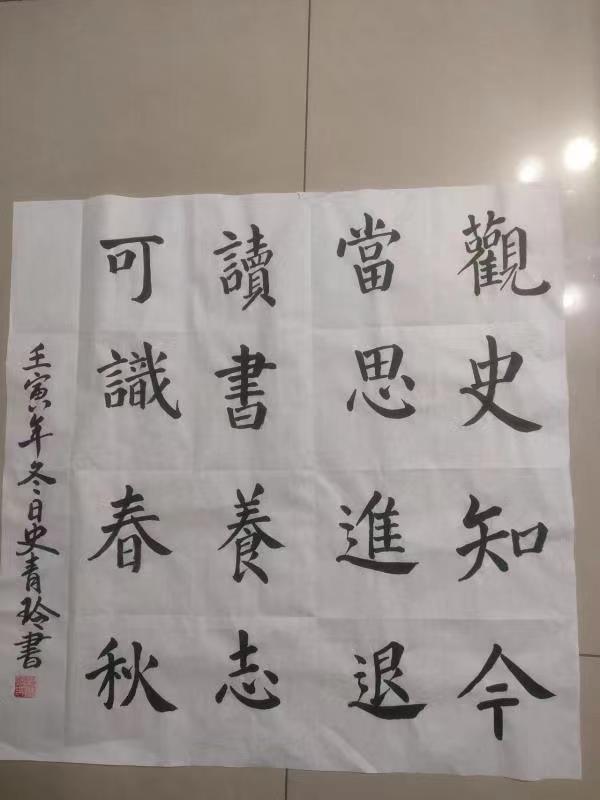 觀史知今
當思進退
讀書養志
可識春秋
壬寅年冬日史青玲書